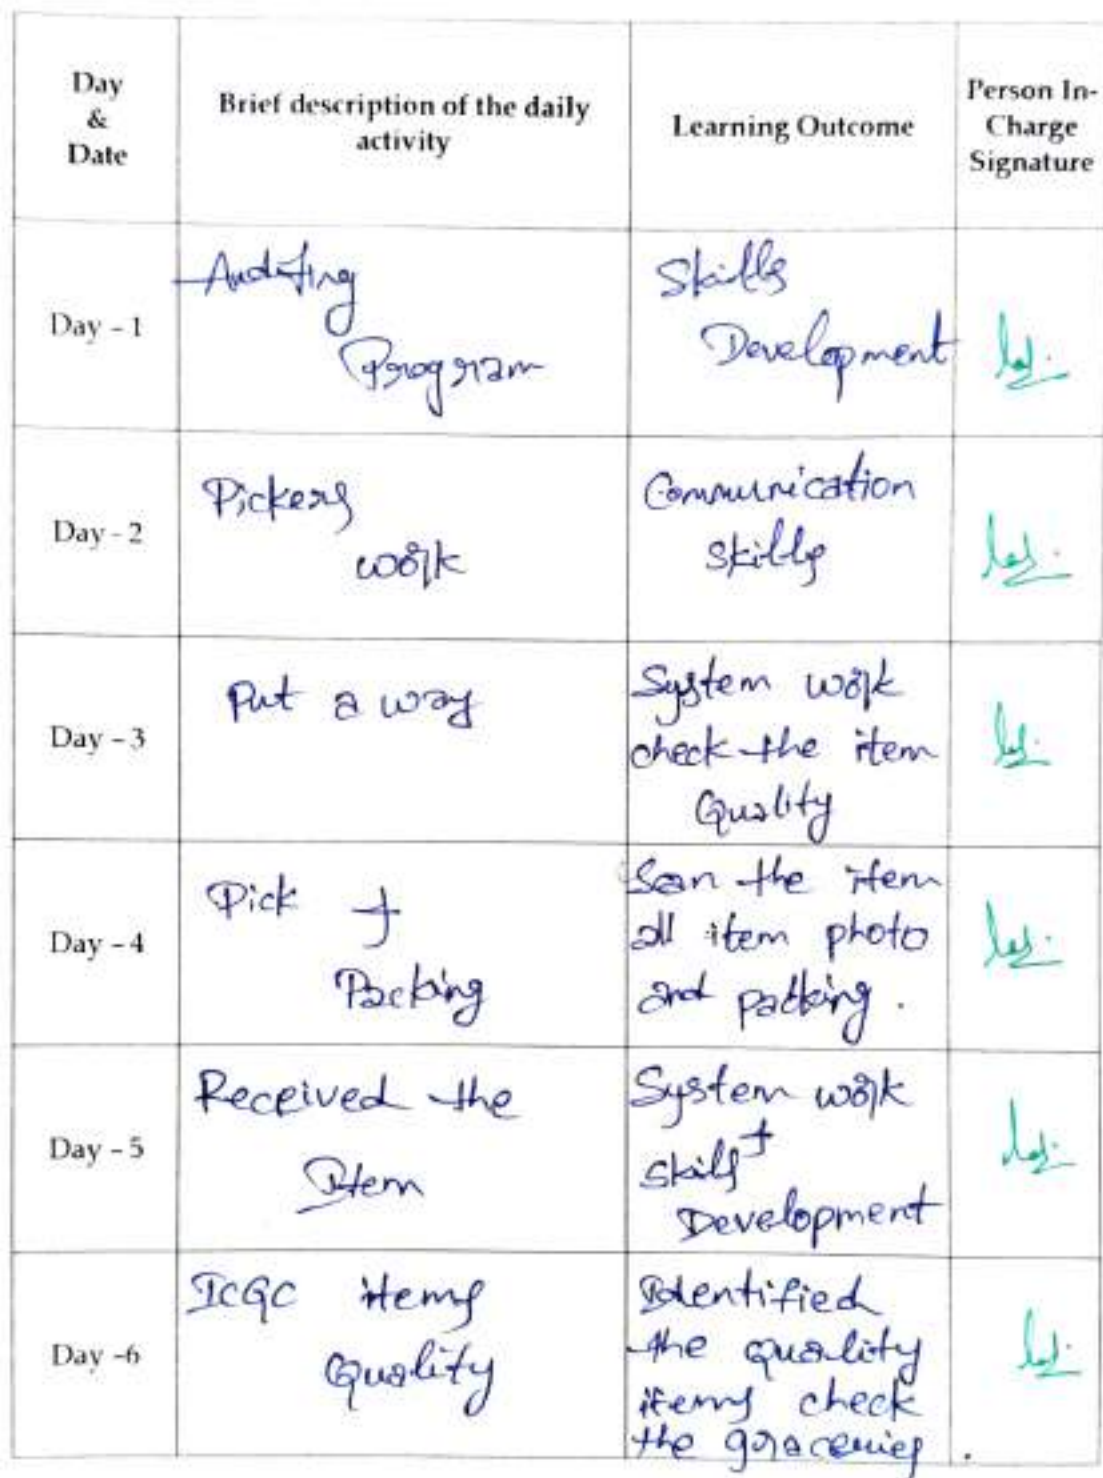 Day & Date
Brief description of the daily activity
Learning Outcome
Person In-Charge Signature
Day - 1
Auditing
Program
Skills
Development
Day - 2
Pickers
work
Communication
skills
Day - 3
Put a way
System work
check the item
Quality
Day - 4
Pick +
Packing
Scan the item
all item photo
and packing .
Day - 5
Received the
Item
System work
+
skills
Development
Day -6
items
Quality
Identified
the quality
items check
the